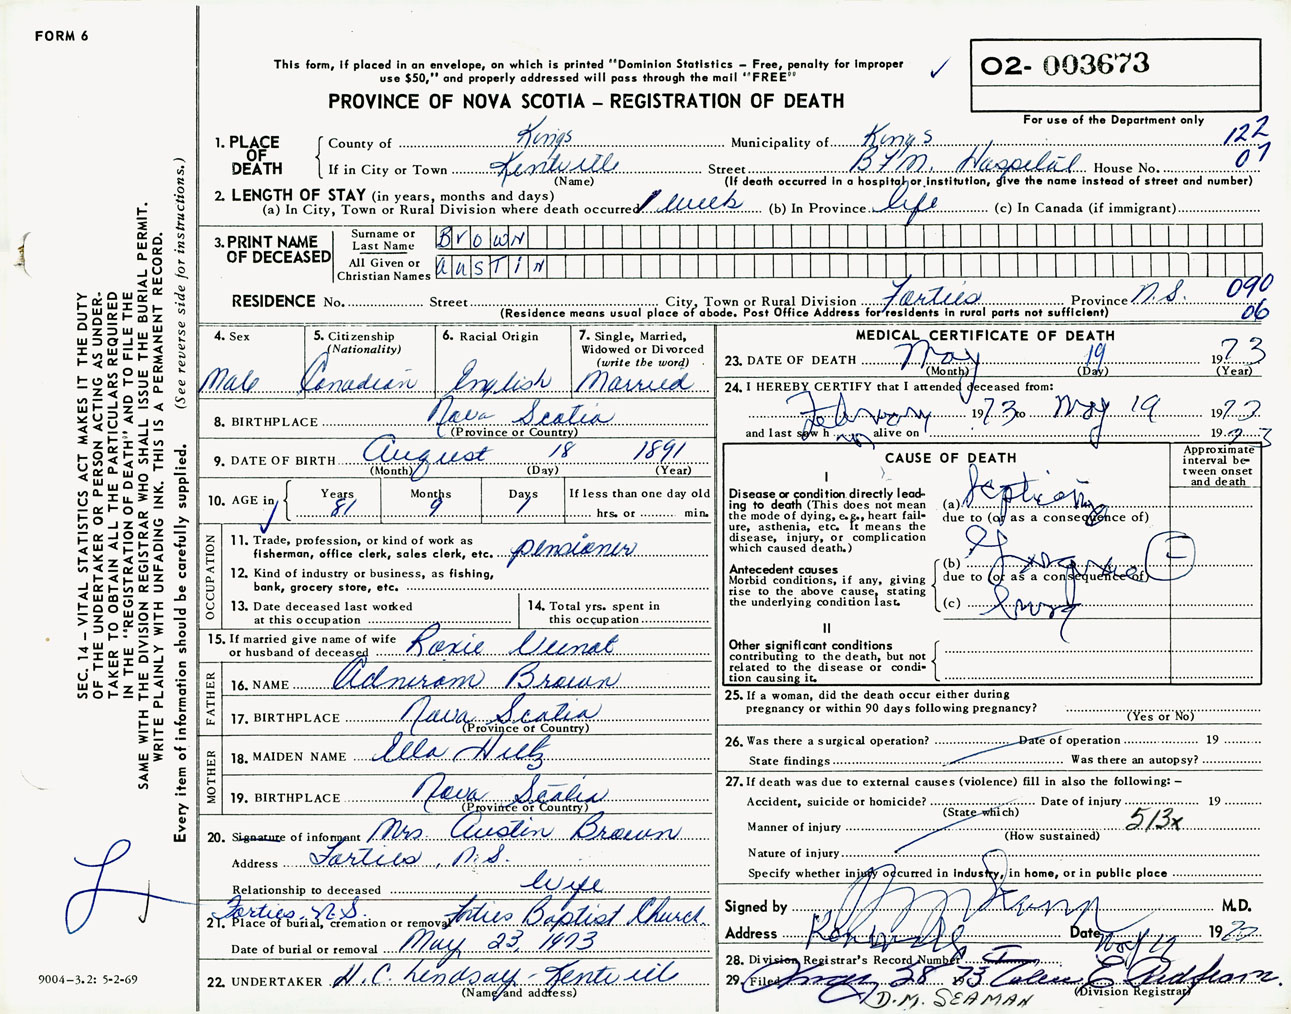 FORM 6
This form, if placed in an envelope, on which is printed "Dominion Statistics – Free, penalty for improper
use $50," and properly addressed will pass through the mail "FREE"
✓
02- 003673
PROVINCE OF NOVA SCOTIA – REGISTRATION OF DEATH
For use of the Department only
1. PLACE OF DEATH
County of Kings Municipality of Kings 122
If in City or Town Kentville Street B.F.M. Hospital House No. 07
(Name) (If death occurred in a hospital or institution, give the name instead of street and number)
2. LENGTH OF STAY (in years, months and days)
(a) In City, Town or Rural Division where death occurred 1 week (b) In Province life (c) In Canada (if immigrant)
3. PRINT NAME OF DECEASED
Surname or Last Name Brown
All Given or Christian Names AUSTIN
RESIDENCE No. Street City, Town or Rural Division Forties Province N.S. 090
(Residence means usual place of abode. Post Office Address for residents in rural parts not sufficient) 06
4. Sex Male
5. Citizenship (Nationality) Canadian
6. Racial Origin English
7. Single, Married, Widowed or Divorced (write the word) Married
8. BIRTHPLACE Nova Scotia
(Province or Country)
9. DATE OF BIRTH August 18 1891
(Month) (Day) (Year)
10. AGE in Years Months Days If less than one day old
81 9 1 hrs. or min.
OCCUPATION
11. Trade, profession, or kind of work as
fisherman, office clerk, sales clerk, etc. pensioner
12. Kind of industry or business, as fishing,
bank, grocery store, etc.
13. Date deceased last worked
at this occupation
14. Total yrs. spent in
this occupation
15. If married give name of wife
or husband of deceased Roxie Veinot
FATHER
16. NAME Adniram Brown
17. BIRTHPLACE Nova Scotia
(Province or Country)
MOTHER
18. MAIDEN NAME Ella Hiltz
19. BIRTHPLACE Nova Scotia
(Province or Country)
20. Signature of informant Mrs. Austin Brown
Address Forties, N.S.
Relationship to deceased Wife
Forties, N.S.
21. Place of burial, cremation or removal Forties Baptist Church
Date of burial or removal May 23, 1973
22. UNDERTAKER H.C. Lindsay – Kentville
(Name and address)
MEDICAL CERTIFICATE OF DEATH
23. DATE OF DEATH May 19 1973
(Month) (Day) (Year)
24. I HEREBY CERTIFY that I attended deceased from:
February 1973 to May 19 1973
and last saw h alive on 1973
CAUSE OF DEATH
Approximate interval between onset and death
I
Disease or condition directly lead-
ing to death (This does not mean
the mode of dying, e.g., heart fail-
ure, asthenia, etc. It means the
disease, injury, or complication
which caused death.)
(a)
due to (or as a consequence of)
Antecedent causes
Morbid conditions, if any, giving
rise to the above cause, stating
the underlying condition last.
(b)
due to (or as a consequence of)
(c)
II
Other significant conditions
contributing to the death, but not
related to the disease or condi-
tion causing it.
25. If a woman, did the death occur either during
pregnancy or within 90 days following pregnancy?
(Yes or No)
26. Was there a surgical operation? Date of operation 19
State findings Was there an autopsy?
27. If death was due to external causes (violence) fill in also the following: –
Accident, suicide or homicide? Date of injury 19
(State which)
Manner of injury 513x
(How sustained)
Nature of injury
Specify whether injury occurred in industry, in home, or in public place
Signed by M.D.
Address Kentville Date May 19 19
28. Division Registrar's Record Number
29. Filed May 28 1973
(Division Registrar)
D.M. SEAMAN
SEC. 14 – VITAL STATISTICS ACT MAKES IT THE DUTY
OF THE UNDERTAKER OR PERSON ACTING AS UNDER-
TAKER TO OBTAIN ALL THE PARTICULARS REQUIRED
IN THE "REGISTRATION OF DEATH" AND TO FILE THE
SAME WITH THE DIVISION REGISTRAR WHO SHALL ISSUE THE BURIAL PERMIT.
WRITE PLAINLY WITH UNFADING INK. THIS IS A PERMANENT RECORD.
Every item of information should be carefully supplied. (See reverse side for instructions.)
9004–3.2: 5-2-69